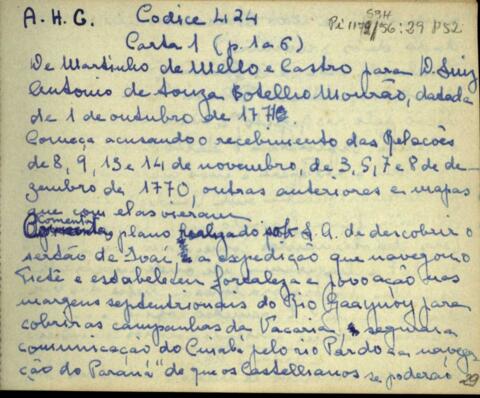 A. H. C. Codice 424
Pi 1172/56:29 P52
Carta 1 (p. 1 a 6)
De Martinho de Mello e Castro para D. Luiz
Antonio de Souza Botelho Mourão, datada
de 1 de outubro de 1771.
Começa acusando o recebimento das Relações
de 8, 9, 13 e 14 de novembro, de 3, 5, 7 e 8 de de-
zembro de 1770, outras anteriores e mapas
que com elas vieram
Comenta plano realizado por S. A. de descobrir o
sertão de Ivaí, e a expedição que navegou o
Tietê e estabeleceu fortaleza e povoação nas
margens septentrionais do Rio para
cobrir as campanhas da Vacaria, segurar a
comunicação do Cuiabá pelo rio Pardo e a navega-
ção do Paraná "de que os Castelhanos se poderão
29